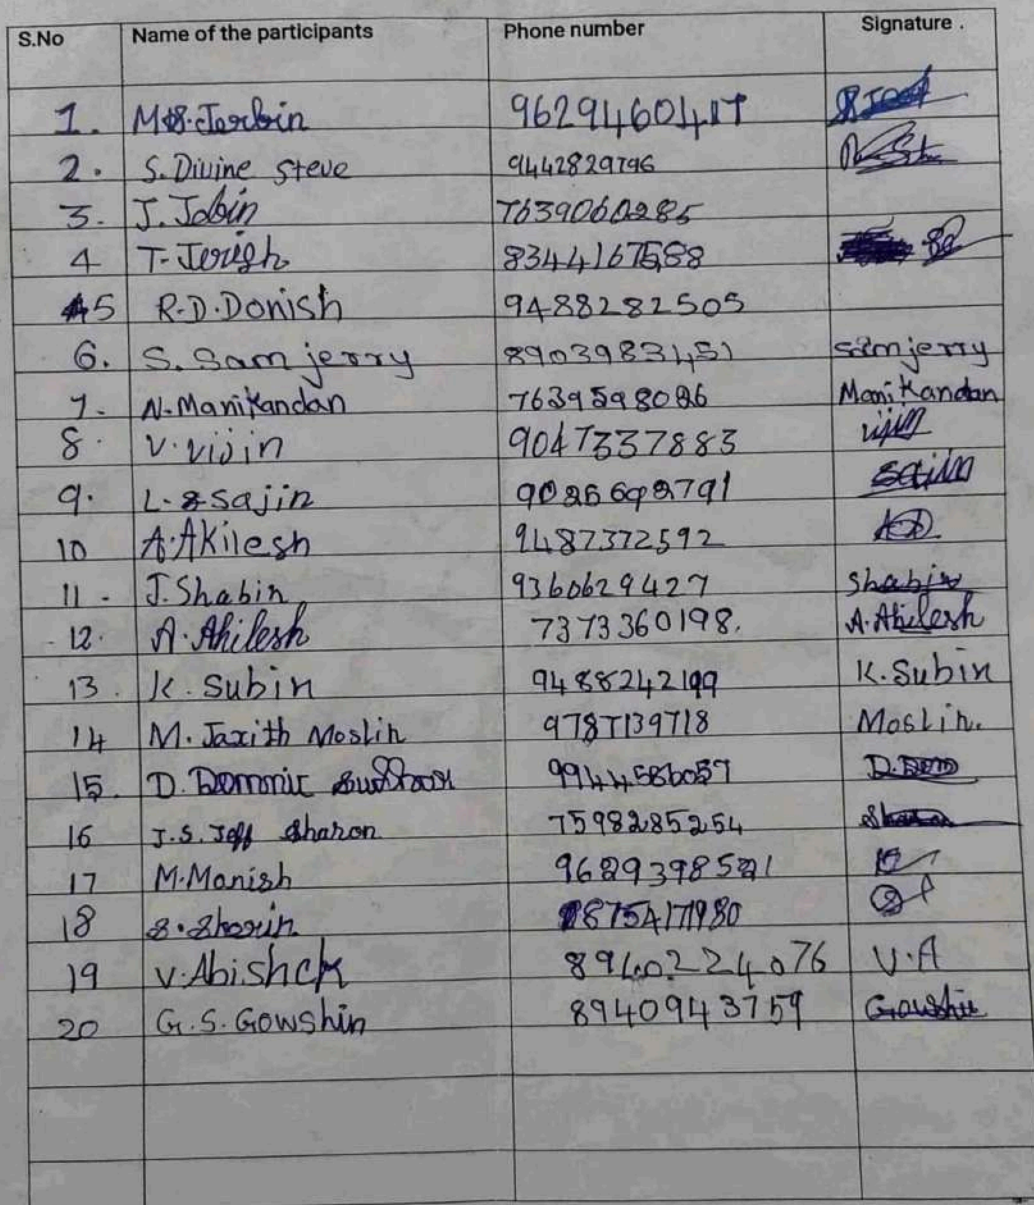 S.No Name of the participants Phone number Signature .
1. M.S. Jerbin 9629460417
2. S. Divine Steve 9442829796
3. J. Jobin 7639060285
4 T. Jerish 8344167588
5 R.D. Donish 9488282505
6. S. Sam jerry 8903983451 Samjerry
7. N. Manikandan 7639598086 Manikandan
8. V. Vijin 9047337883 vijin
9. L. Sajin 9025692791 sajin
10 A. Akilesh 9487372592
11. J. Shabin 9360629427 Shabin
12. A. Ahilesh 7373360198. A. Ahilesh
13. K. Subin 9488242199 K. Subin
14 M. Jaxith Moslin 9787139718 Moslin.
15. D. Dommic 9944586057 D. Dom
16 J.S. Jeff Sharon 7598285254 Sharon
17 M. Monish 9629398521
18 S. Sherin 8754171980
19 V. Abishek 8940224076 V.A
20 G.S. Gowshin 8940943759 Gowshin